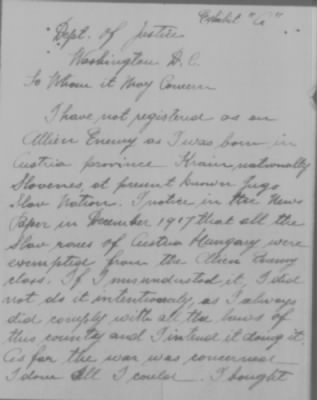 Exhibit "A"
Dept. of Justice
Washington D.C.
To Whom it May Concern
I have not registered as an
Alien Enemy as I was born in
Austria province Krain, nationality
Slovenes, at present known Jugo
Slav Nation. I notice in the News
Paper in December 1917 that all the
Slav races of Austria Hungary were
exempted from the Alien Enemy
class. If I misunderstod it, I did
not do it intentionaly, as I always
did comply with all the laws of
this country and I intend it doing it.
As for the war was concerned
I done all I could. I bought